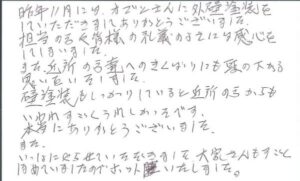 昨年11月には、オゾンさんに外壁塗装を
していただきましてありがとうございました。
担当の方や皆様の礼義のよさには感心を
してしまいました。
また、近所の方達へのきくばりにも頭の下がる
思いでいたしました。
壁塗装もしっかりしていると近所の方からも
いわれすごくうれしかったです。
本当にありがとうございました。
また、
いっしょにやらせていただきました大家さんもすごく
ほめていましたのでホットいたしました。